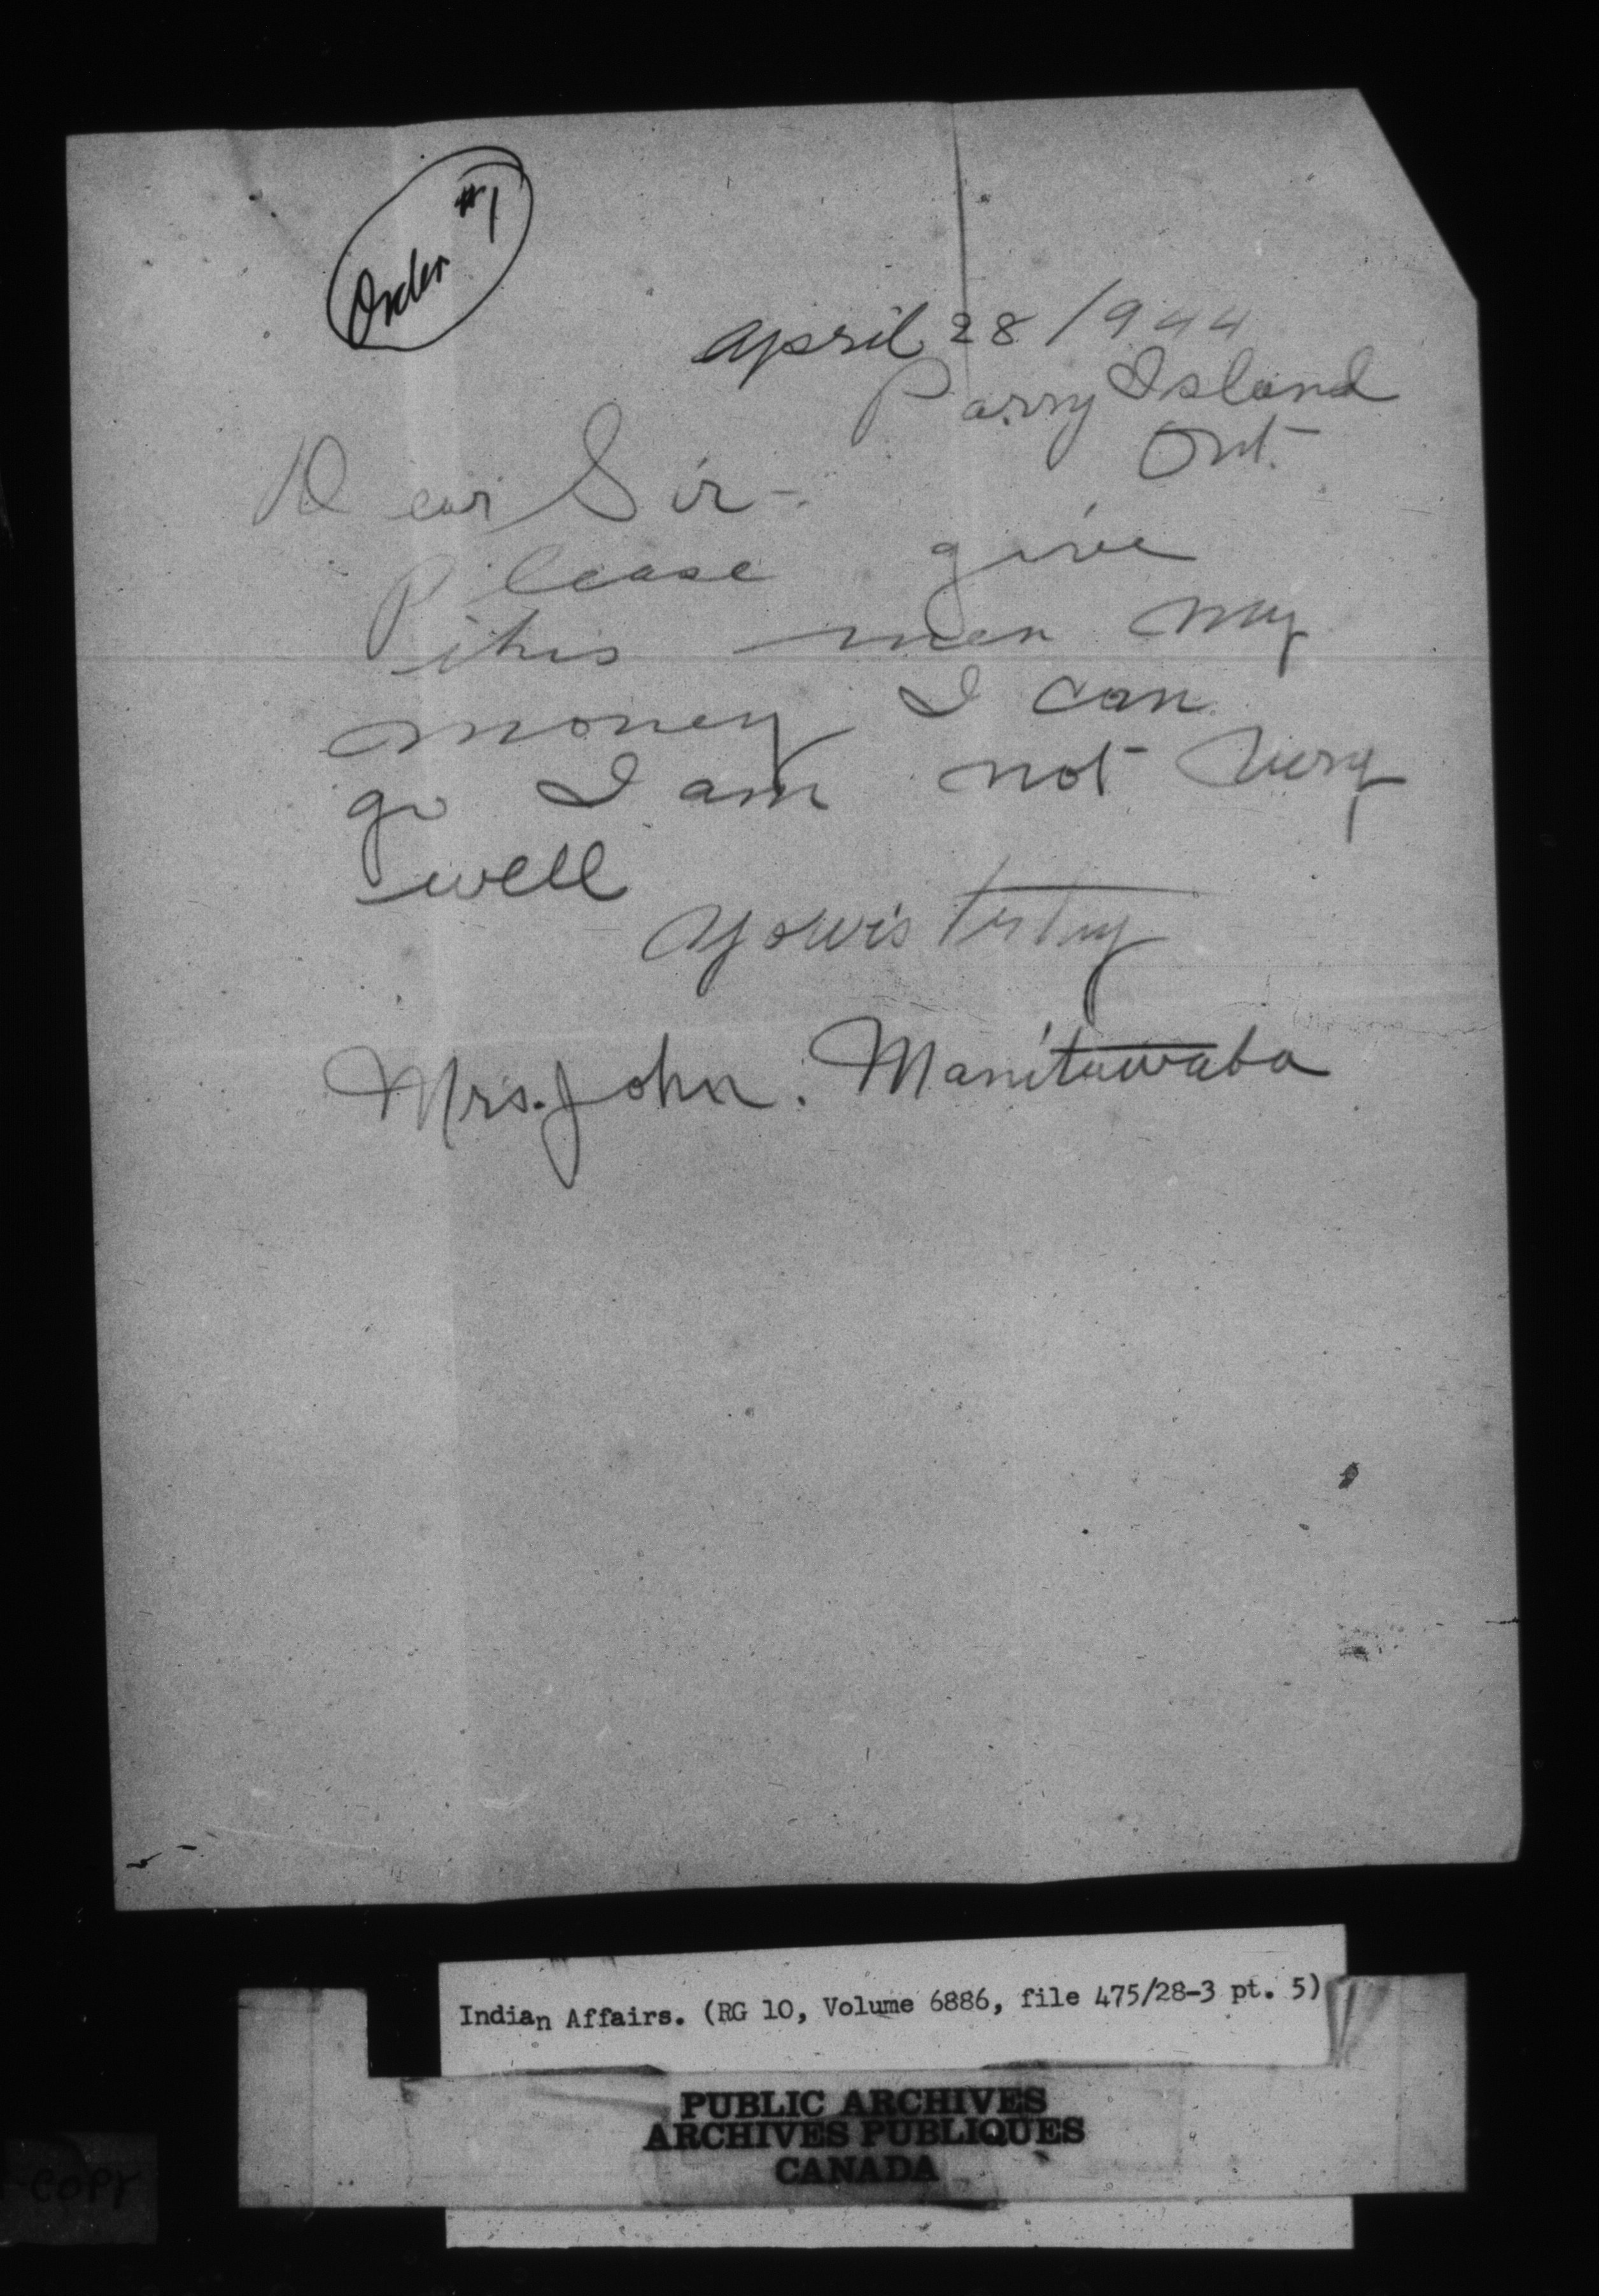 Order #1
april 28/1944
Parry Island
Ont.
Dear Sir-.
Please give
this man my
money I can
go I am not very
well
yours
Mrs. John. Manitowaba
Indian Affairs. (RG 10, Volume 6886, file 475/28-3 pt. 5)
PUBLIC ARCHIVES
ARCHIVES PUBLIQUES
CANADA
COPY